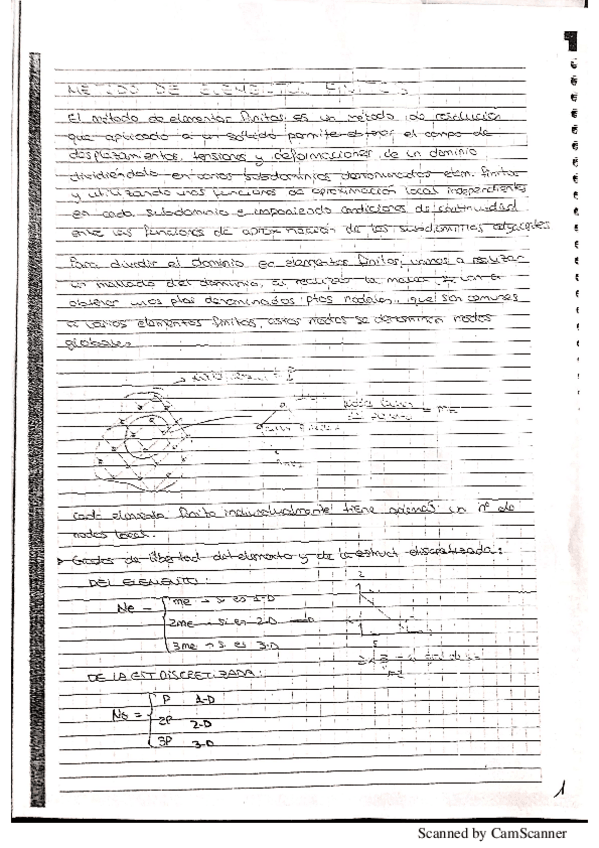 METODO DE ELEMENTOS FINITOS
El método de elementos finitos es un método de resolución
que aplicado a un sólido permite obtener el campo de
desplazamientos, tensiones y deformaciones de un dominio
dividiéndolo en varios subdominios denominados elem. finitos
y utilizando unas funciones de aproximación local independientes
en cada subdominio e imponiendo condiciones de continuidad
entre las funciones de aproximación de los subdominios adyacentes
Para dividir el dominio en elementos finitos, vamos a realizar
un mallado del dominio, al realizar la malla se van a
obtener unos ptos denominados ptos nodales, que son comunes
a varios elementos finitos, estos nodos se denominan nodos
globales
= me
cada elemento finito individualmente tiene además un nº de
nodos local.
Grados de libertad del elemento y de la estruct. discretizada:
DEL ELEMENTO:
Ne =
me → si es 1-D
2me → si es 2-D
3me → si es 3-D
2
DE LA EST DISCRETIZADA:
No =
P 1-D
2P 2-D
3P 3-D
1
Scanned by CamScanner